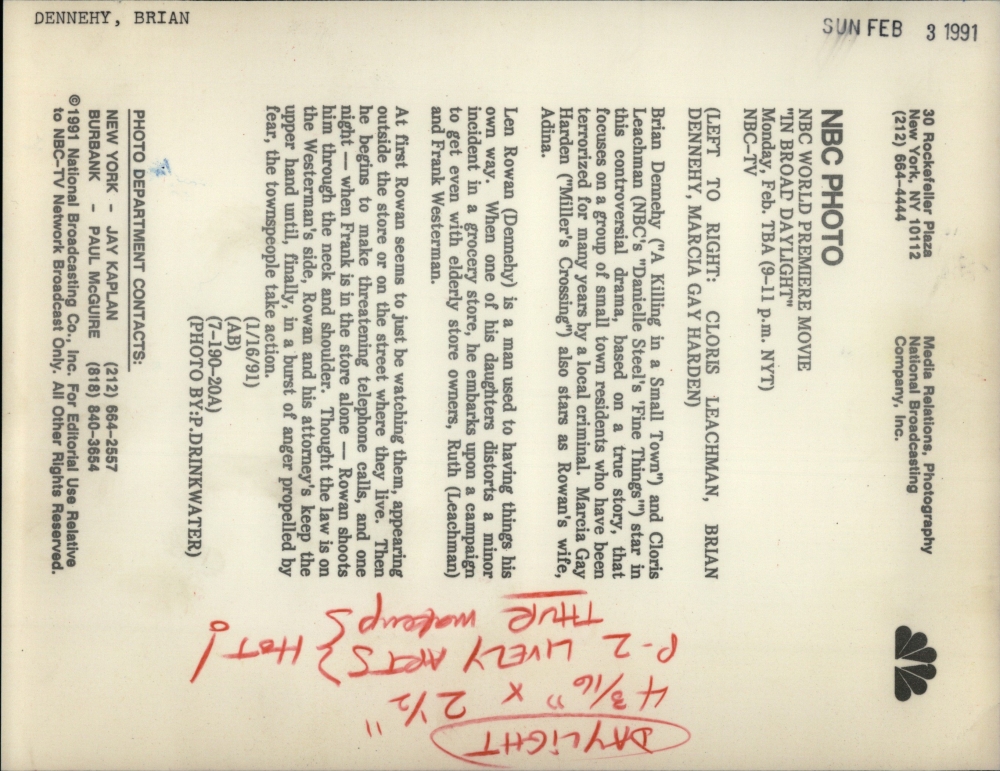 DENNEHY, BRIAN
SUN FEB 3 1991
30 Rockefeller Plaza
New York, NY 10112
(212) 664-4444
Media Relations, Photography
National Broadcasting
Company, Inc.
NBC PHOTO
NBC WORLD PREMIERE MOVIE
"IN BROAD DAYLIGHT"
Monday, Feb. TBA (9-11 p.m. NYT)
NBC-TV
(LEFT TO RIGHT: CLORIS LEACHMAN, BRIAN
DENNEHY, MARCIA GAY HARDEN)
Brian Dennehy ("A Killing in a Small Town") and Cloris
Leachman (NBC's "Danielle Steel's 'Fine Things'") star in
this controversial drama, based on a true story, that
focuses on a group of small town residents who have been
terrorized for many years by a local criminal. Marcia Gay
Harden ("Miller's Crossing") also stars as Rowan's wife,
Adina.
Len Rowan (Dennehy) is a man used to having things his
own way. When one of his daughters distorts a minor
incident in a grocery store, he embarks upon a campaign
to get even with elderly store owners, Ruth (Leachman)
and Frank Westerman.
At first Rowan seems to just be watching them, appearing
outside the store or on the street where they live. Then
he begins to make threatening telephone calls, and one
night — when Frank is in the store alone — Rowan shoots
him through the neck and shoulder. Thought the law is on
the Westerman's side, Rowan and his attorney's keep the
upper hand until, finally, in a burst of anger propelled by
fear, the townspeople take action.
(1/16/91)
(AB)
(7-190-20A)
(PHOTO BY:P.DRINKWATER)
PHOTO DEPARTMENT CONTACTS:
NEW YORK - JAY KAPLAN (212) 664-2557
BURBANK - PAUL McGUIRE (818) 840-3654
©1991 National Broadcasting Co., Inc. For Editorial Use Relative
to NBC-TV Network Broadcast Only. All Other Rights Reserved.
DAYLIGHT
4 3/16" x 2 1/2"
P-2 LIVELY ARTS } HOT!
THUR makeups